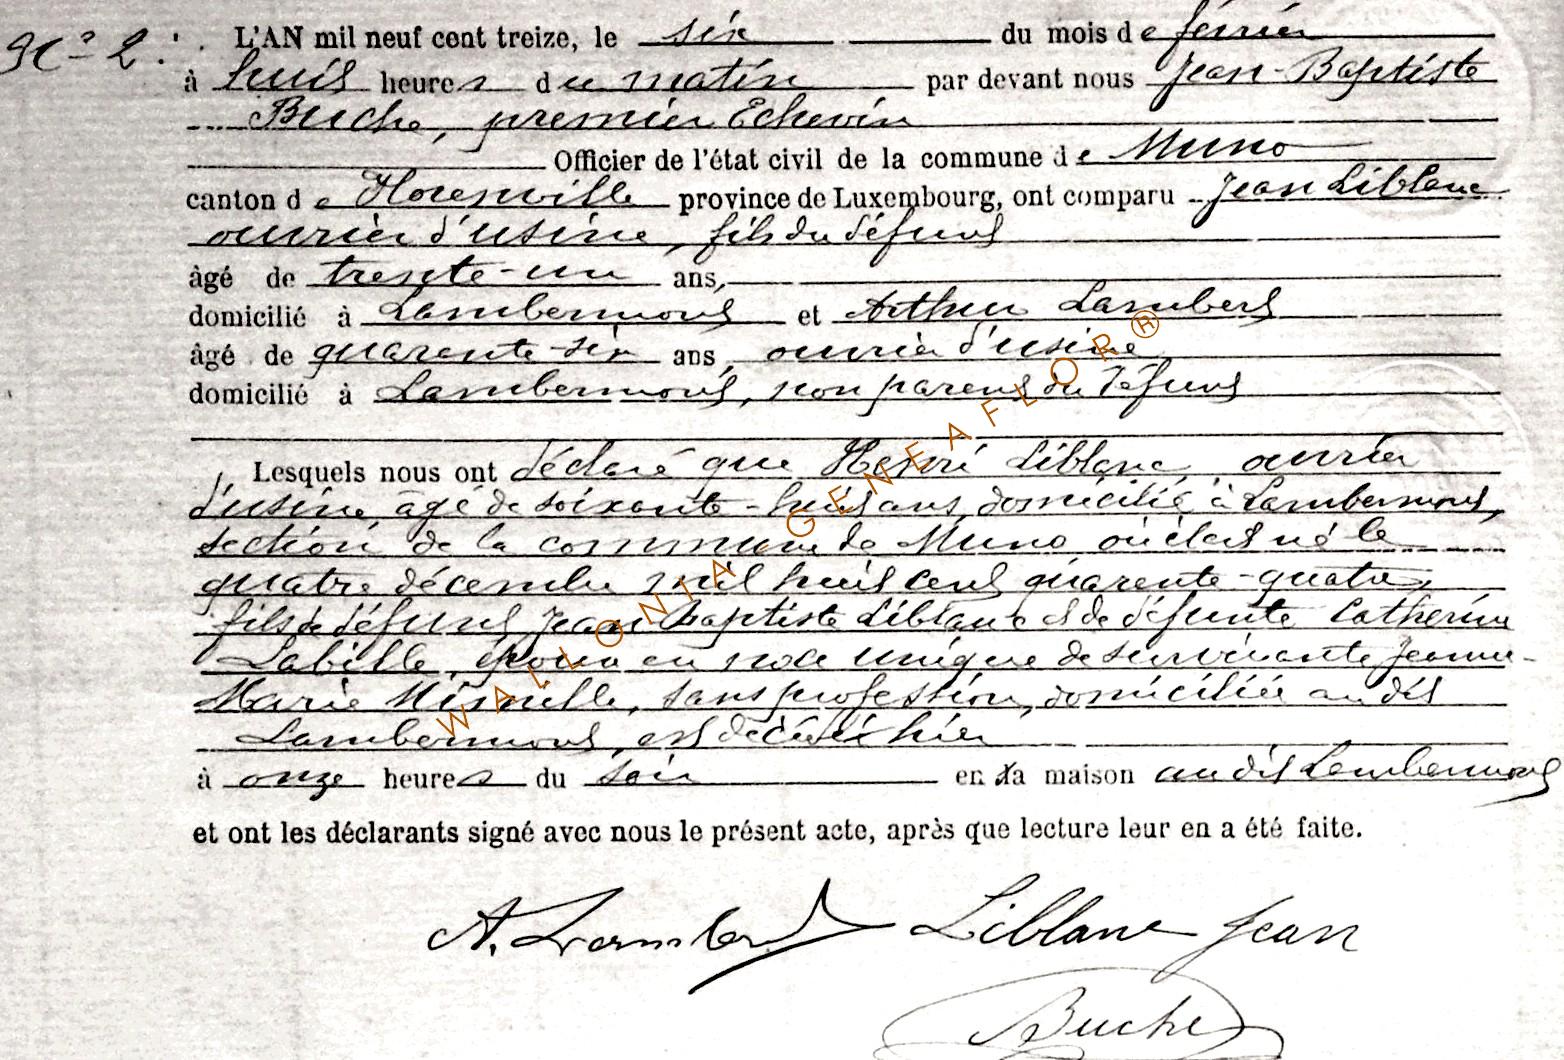 N° 2. L'AN mil neuf cent treize, le six du mois de février
à huit heures du matin par devant nous Jean-Baptiste
Buche, premier Echevin
Officier de l'état civil de la commune de Muno
canton de Florenville province de Luxembourg, ont comparu Jean Liblanc
ouvrier d'usine, fils du défunt
âgé de trente-un ans,
domicilié à Lambermont et Arthur Lambert
âgé de quarante-six ans, ouvrier d'usine
domicilié à Lambermont, non parent du défunt
Lesquels nous ont déclaré que Henri Liblanc, ouvrier
d'usine âgé de soixante-huit ans, domicilié à Lambermont,
section de la commune de Muno où était né le
quatre décembre mil huit cent quarante-quatre,
fils de défunt Jean Baptiste Liblanc et de défunte Catherine
Labille, époux en noce unique de survivante Jeanne-
Marie, sans profession, domiciliée au dit
Lambermont, est décédé hier
à onze heures du soir en sa maison au dit Lambermont
et ont les déclarants signé avec nous le présent acte, après que lecture leur en a été faite.
A. Lambert Liblanc Jean
Buche
WALLONIA GENEAFLOR®